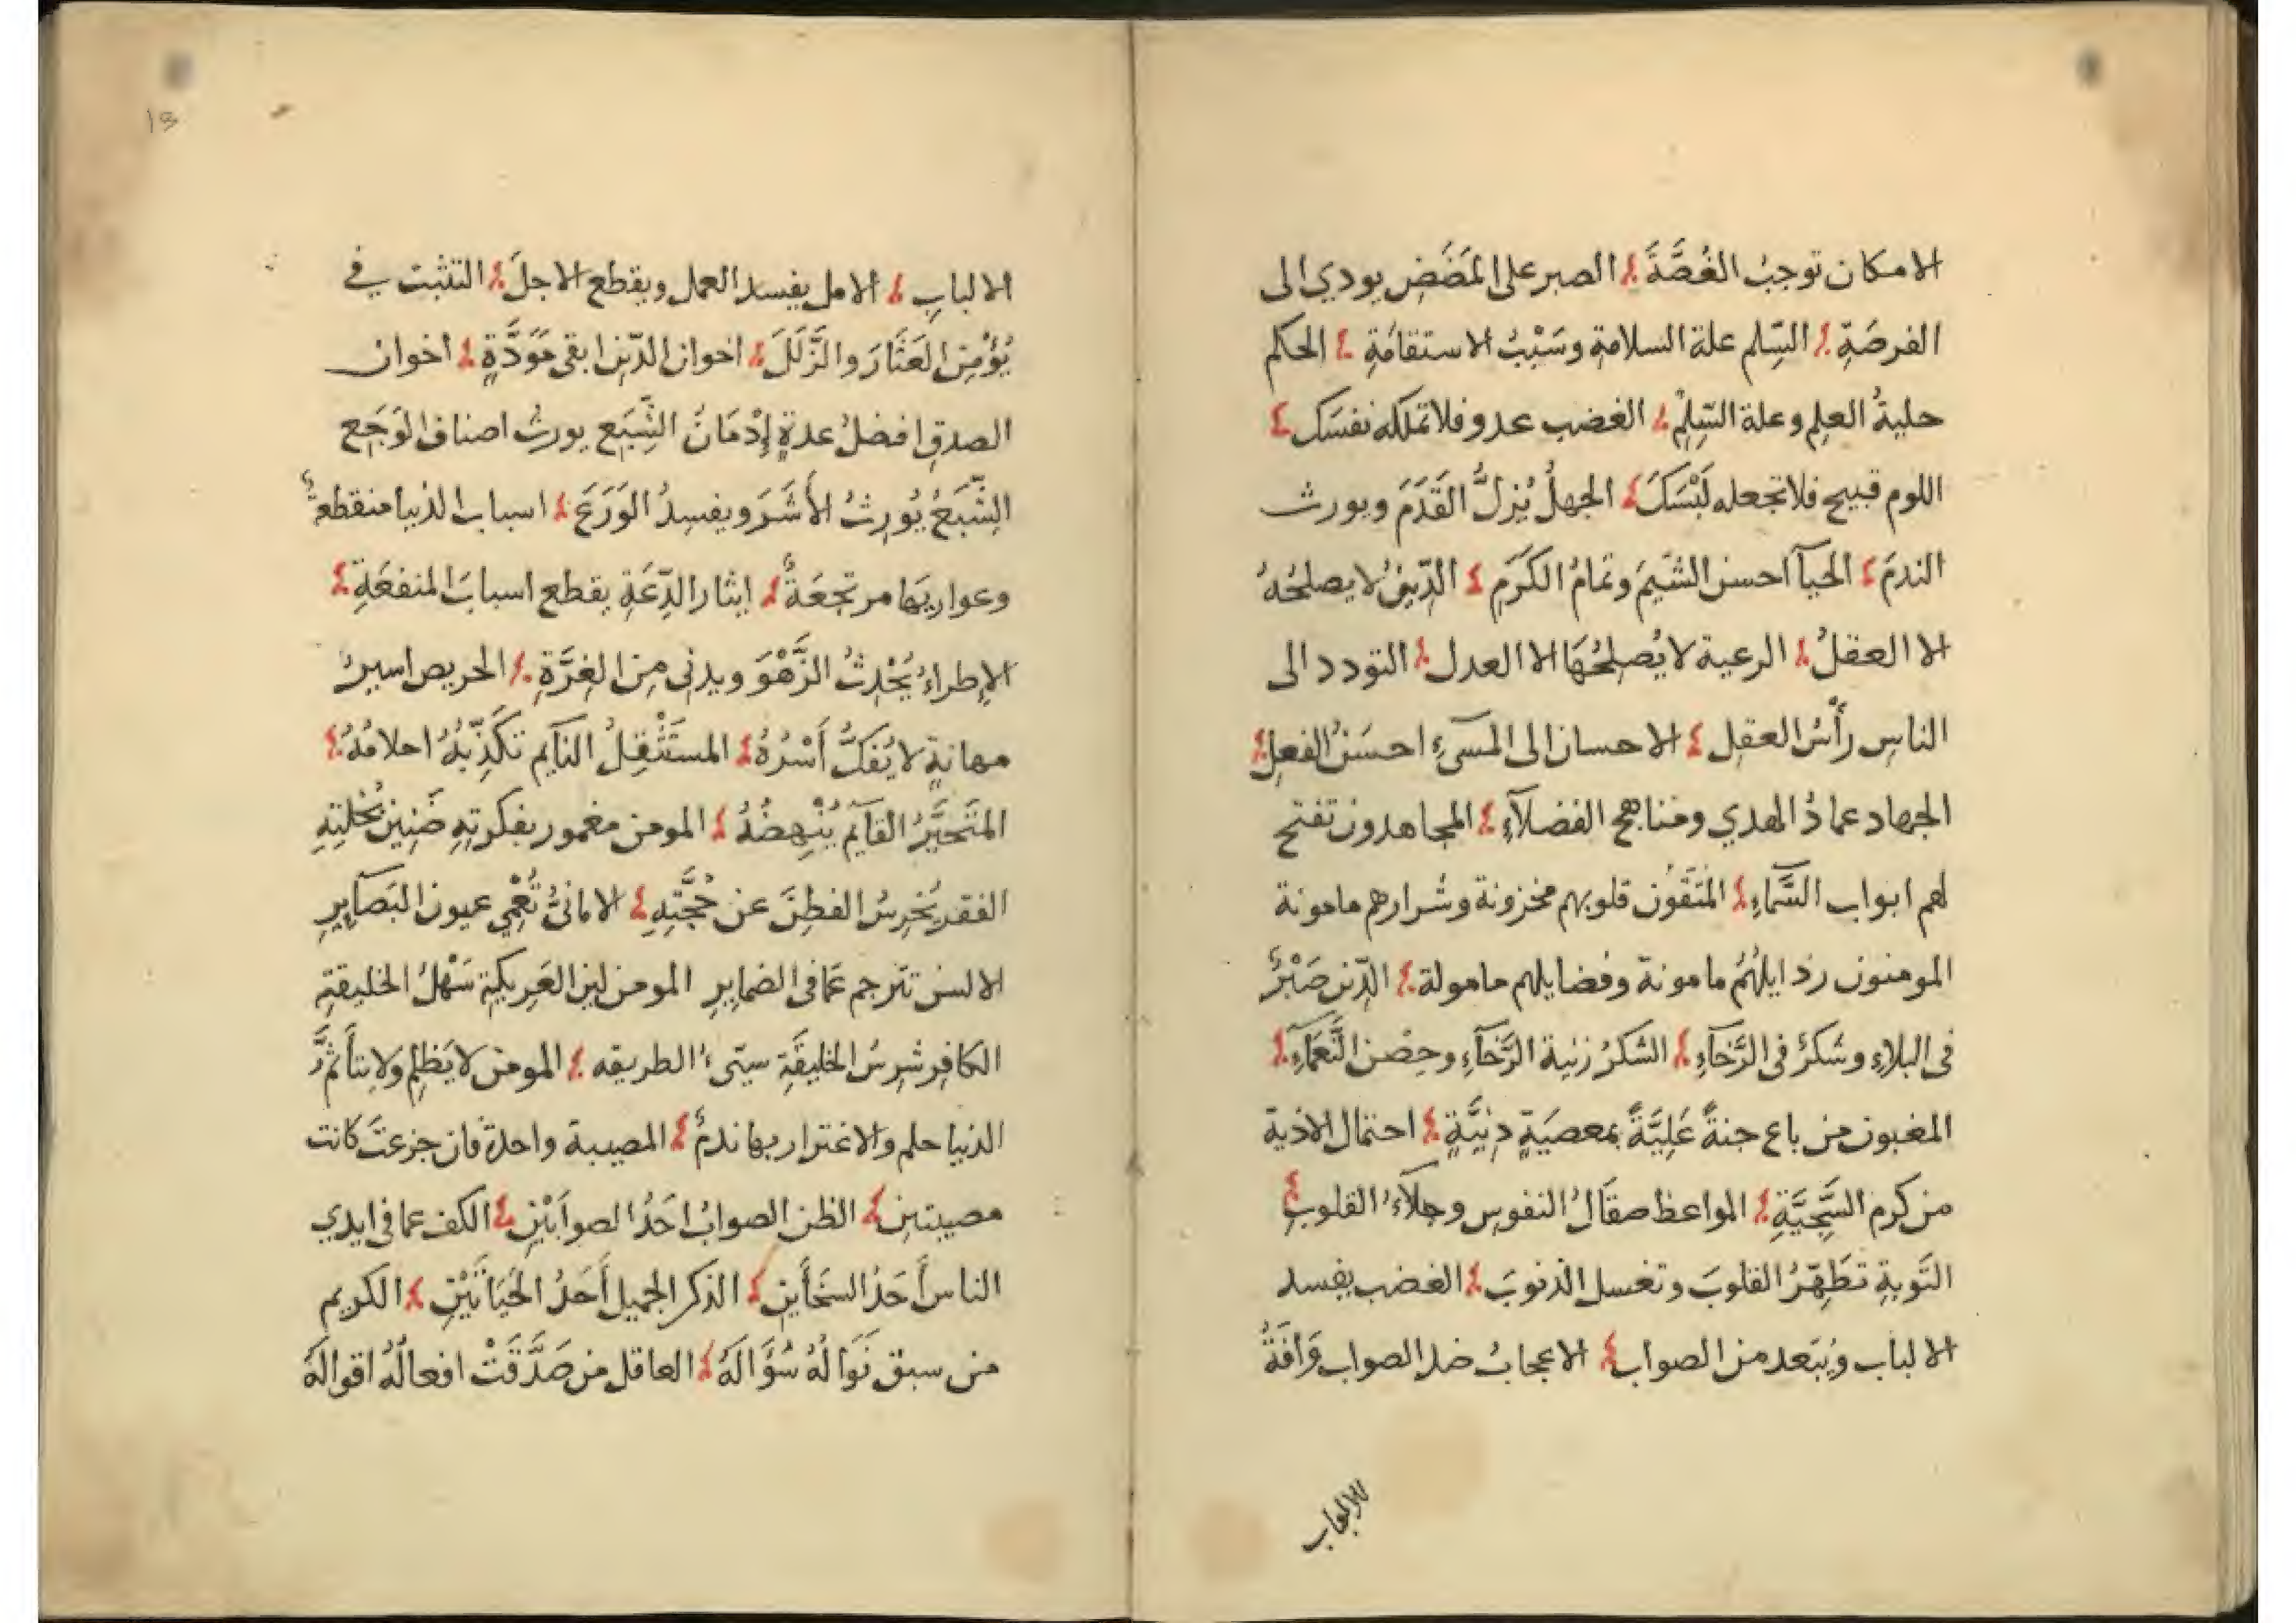 الامكان توجبُ الغُصَّةَ ⁏ الصبر على المَضَضِ يودي الى
الفرصَةِ ⁏ السّلم علة السلامةِ وسَبَبُ الاستقامَةِ ⁏ الحكم
حليةُ العلِم وعلة السِّلِمْ ⁏ الغضب عدو فلا تملكه نفسَكَ ⁏
اللوم قبيح فلا تجعله لَبْسَكَ ⁏ الجهلُ يُزِلُّ القَدَمَ ويورث
الندمَ ⁏ الحيآ احسن الشّيَمِ وتمامُ الكَرَمِ ⁏ الدّينُ لا يصلحُهُ
الا العقلُ ⁏ الرعية لا يُصلحُهَا الا العدل ⁏ التودد الى
الناسِ رأسُ العقلِ ⁏ الاحسان الى المسَيءِ احسَنُ الفعلِ ⁏
الجهاد عمادُ الهدي ومناهج الفضلآءِ ⁏ المجاهدون تفتح
لهم ابواب السَّمآءِ ⁏ المُتَقَون قلوبهم مخزونة وشرارهم مامونة
المومنون رذايلهُمُ مامونة وفضايلهم مامولة ⁏ الدّين صَبْرٌ
فى البلاءِ وشكرٌ فى الرَّخآءِ ⁏ الشكرُ زنية الرَّخآءِ وحِصْن النَّعمآءِ ⁏
المغبون من باع جنةً عَليَّةً بمعصيَةٍ دِنيَّةٍ ⁏ احتمال الاذية
من كرم السَّجِيَّةِ ⁏ المواعظ صقَالُ النفوسِ وجلآءُ القلوبِ ⁏
التَوبةِ تطَهِّرُ القلوبَ وتغسل الذنوبَ ⁏ الغضب يفسد
الالباب ويُبَعد من الصواب ⁏ الاعجابُ ضد الصواب وَافَةُ
الالباب
13
الالبابِ ⁏ الامل يفسد العمل ويقطع الاجلَ ⁏ التثبت في
يُؤْمِن العَثَارَ والزَّلَلَ ⁏ اخوان الدّين ابقى مَوَدَّةٍ ⁏ اخوان
الصدقِ افضلُ عدةٍ إدْمَانُ الشِّبَع يورثُ اصناف الوَجَع
الشِّبَعُ يُورِثُ الأشَرَ ويفسِدُ الوَرَعَ ⁏ اسباب الدنيا منقطعةٌ
وعواريهَا مرتجعَةٌ ⁏ ايثار الدِّعَةِ يقطع اسبابَ المنفعَةِ ⁏
الإطراءُ يُحْدِثُ الزَّهْوَ ويدنى مِن الغِرَّةِ ⁏ الحريص اسيرُ
مهانةٍ لا يُفَكُّ أَسْرُهُ ⁏ المستَثْقِلُ النآيم تَكَذِّبُهُ احلامُهُ ⁏
المتَحَيَّرُ القآيم يُنْهِضُهُ ⁏ المومن مغمور بفكرتهِ ضَنِين بُخلتِهِ
الفقر يُخرِسُ الفطِنَ عن حُجَّتِهِ ⁏ الامانيُّ تُعْمِي عيون البَصآيِرِ
الالسن تترجم عمَا فى الضمايرِ المومن لين العَرِيكةِ سَهْلُ الخليقةِ
الكافِر شرِسُ الخليقَةِ سيّىءُ الطريقه ⁏ المومن لا يَظلِم ولا يتأثمُّ
الدنيا حلم والاغترار بها ندمٌ ⁏ المصيبة واحدة فان جزعتَ كانت
مصيبتين ⁏ الظن الصوابُ احَدُ الصوابَيْنِ ⁏ الكف عما فى ايدي
الناس أَحَدُ السخَأَين ⁏ الذكر الجميل أَحَدُ الحَيَاتَيْنِ ⁏ الكريم
من سبق نَوَالُهُ سُؤَالَهُ ⁏ العاقل من صَدَّقَتْ افعالُهُ اقوالَهُ